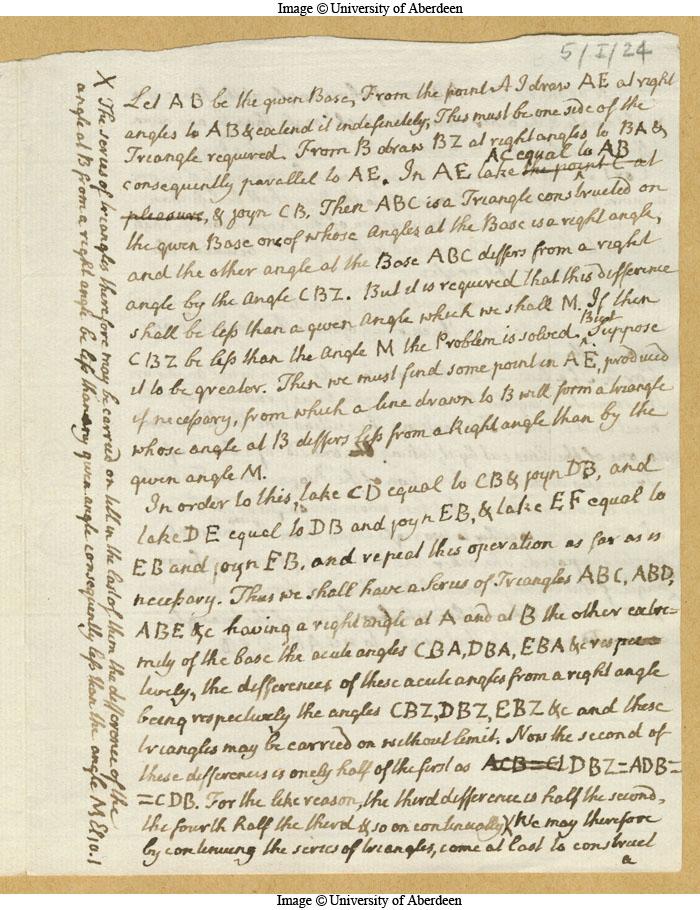 Image © University of Aberdeen
5/I/24
Let AB be the given Base, From the point A I draw AE at right
angles to AB & extend it indefinitely, This must be one side of the
Triangle required. From B draw BZ at right angles to BA &
consequently parallel to AE. In AE take the point C at
AC equal to AB
pleasure, & joyn CB, Then ABC is a Triangle constructed on
the given Base one of whose Angles at the Base is a right angle,
and the other angle at the Base ABC differs from a right
angle by the Angle CBZ. But it is required that this difference
shall be less than a given Angle which we shall M. If then
CBZ be less than the Angle M the Problem is solved. But Suppose
it to be greater. Then we must find some point in AE, produced
if necessary, from which a line drawn to B will form a triangle
whose angle at B differs less from a Right angle than by the
given angle M.
In order to this, take CD equal to CB & joyn DB, and
take DE equal to DB and joyn EB, & take EF equal to
EB and joyn FB, and repeat this operation as far as is
necessary. Thus we shall have a Series of Triangles ABC, ABD,
ABE &c having a right angle at A and at B the other extre=
mity of the base the acute angles CBA, DBA, EBA &c respec=
tively, the differences of these acute angles from a right angle
being respectively the angles CBZ, DBZ, EBZ &c and these
triangles may be carried on without limit. Now the second of
these differences is onely half of the first as ACB=CI DBZ=ADB=
=CDB. For the like reason, the third difference is half the second,
the fourth half the third & so on continually X We may therefore
by continuing the series of triangles, come at last to construct
a
X The series of triangles therefore may be carried on till in the last of them the difference of the
angle at B from a right angle be less than any given angle consequently less than the angle M El 10.1
Image © University of Aberdeen